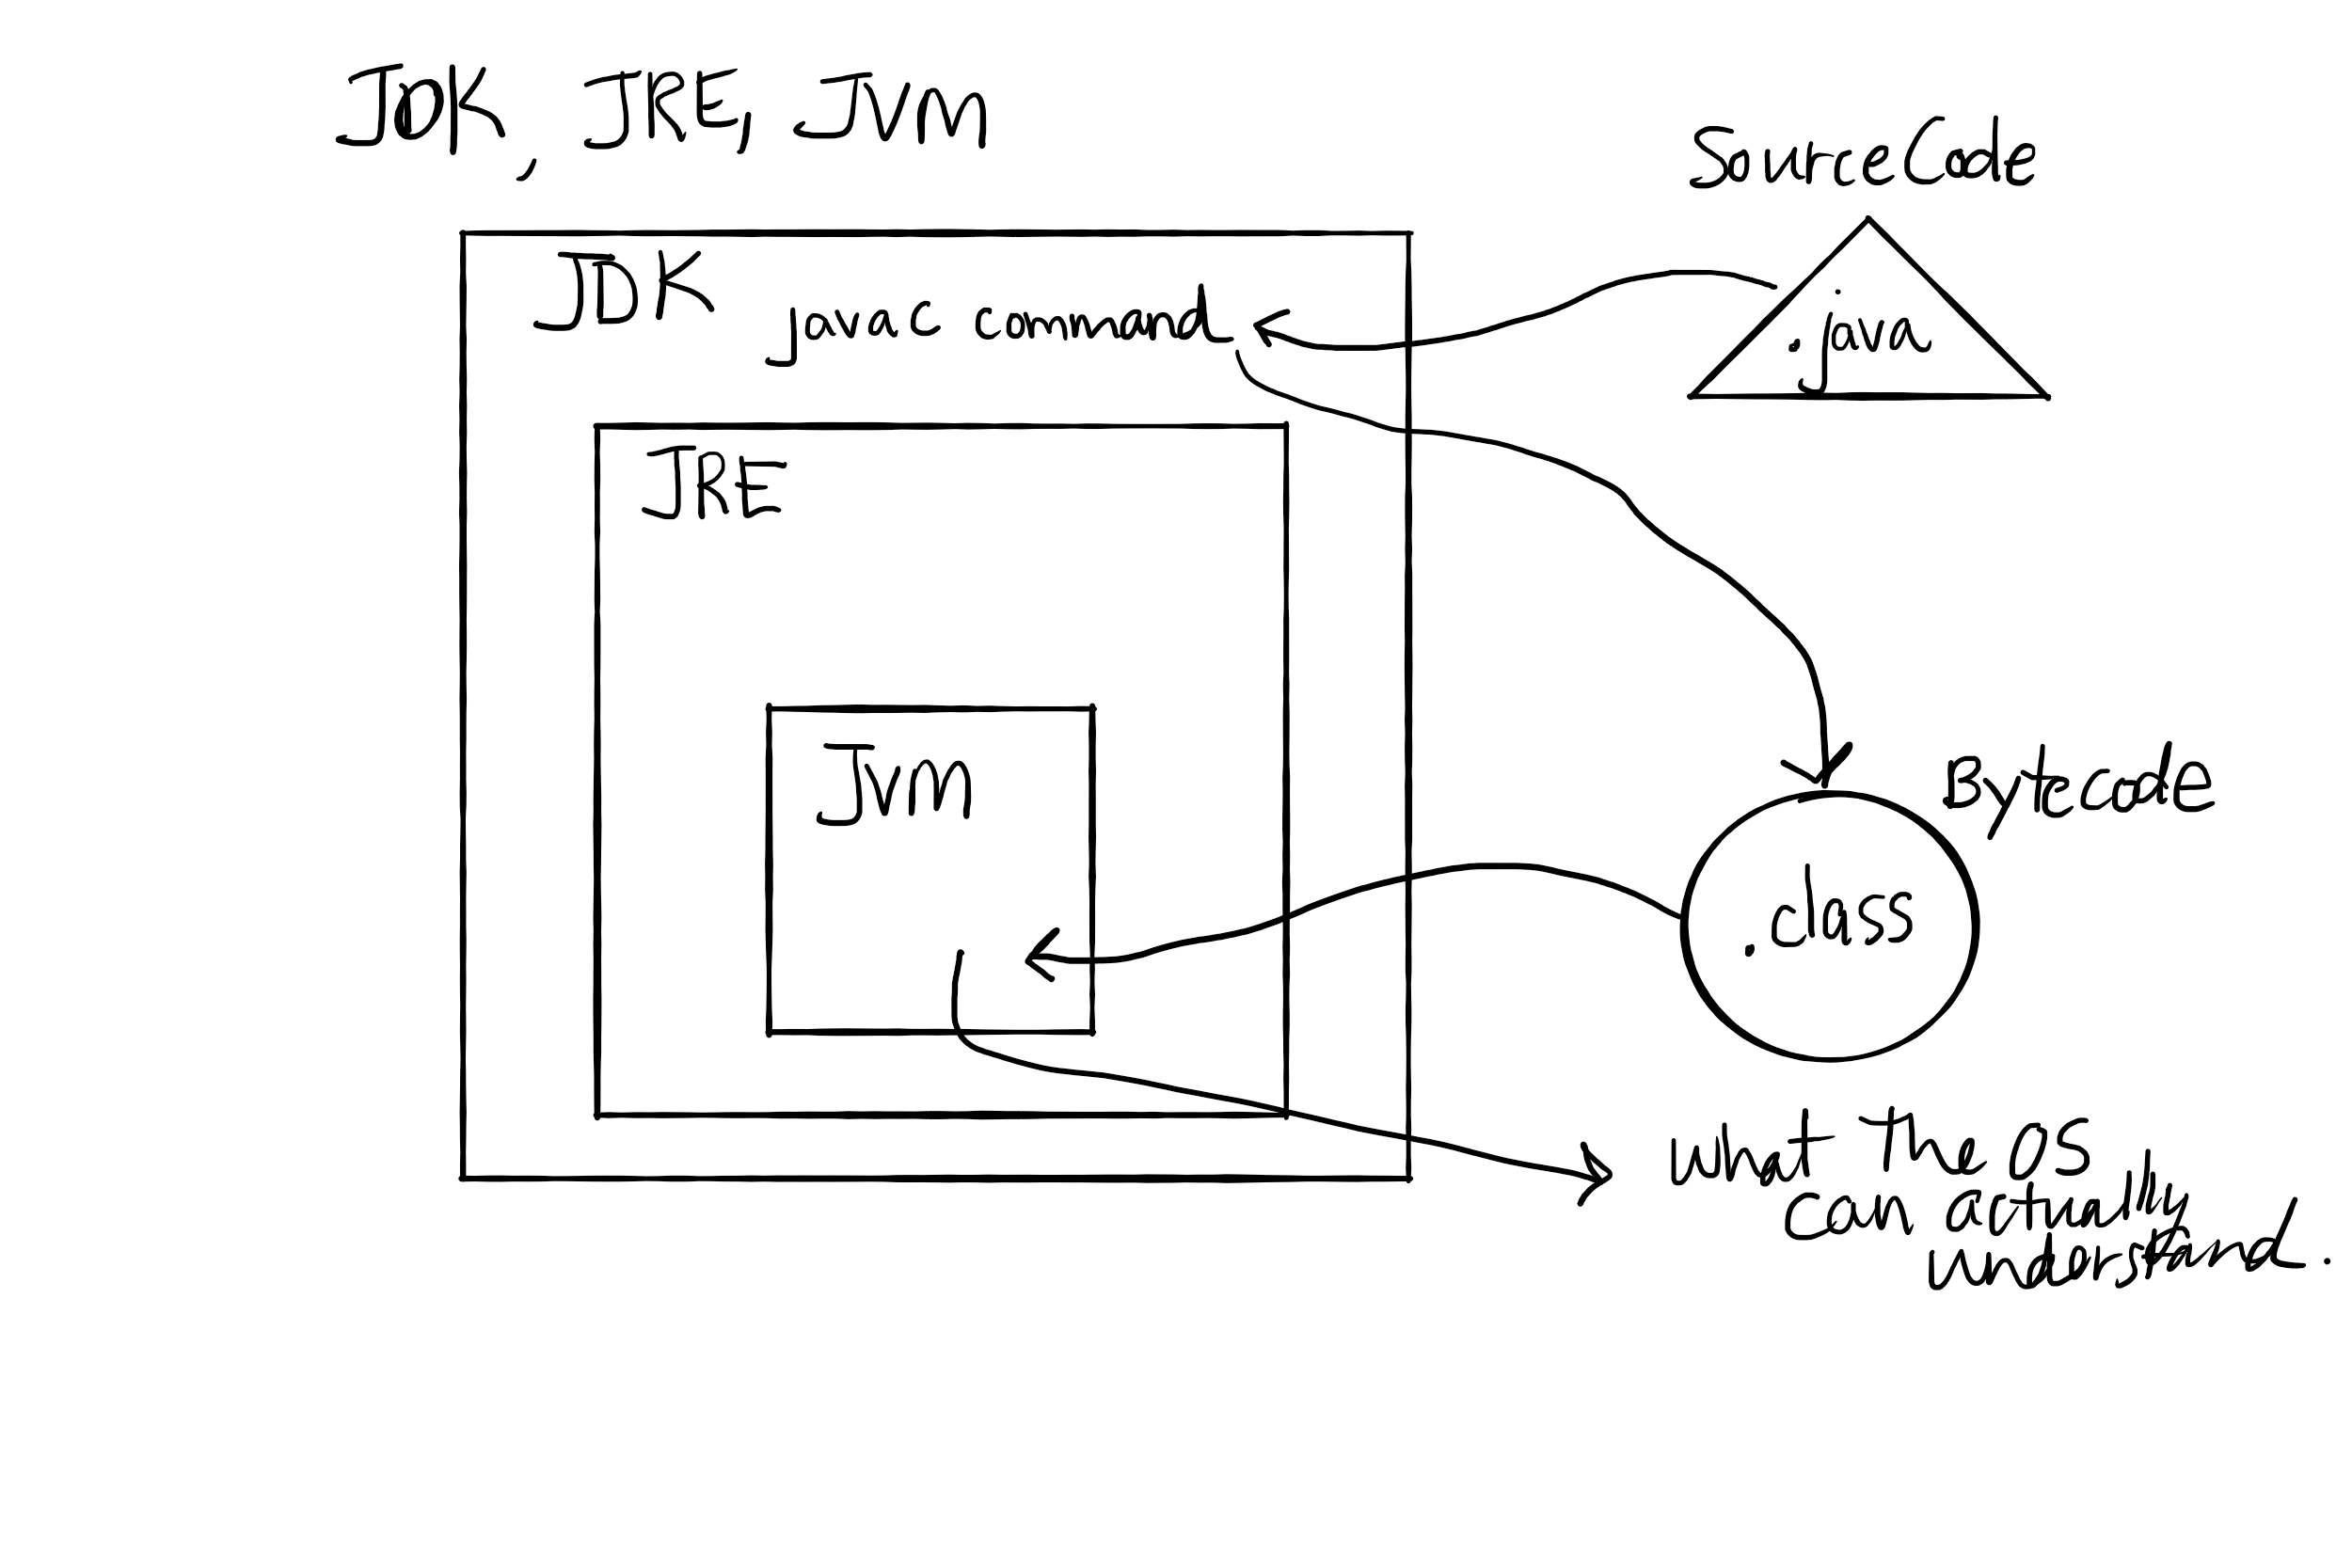 JDK, JRE, JVM
Source Code
JDK
javac command
.java
JRE
JVM
Bytecode
.class
what the OS
can actually
understand.